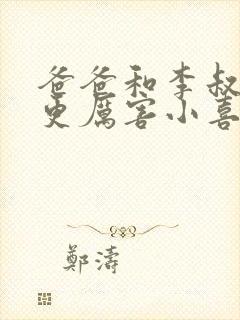 爸爸和李叔
更厲害小喜
鄭濤